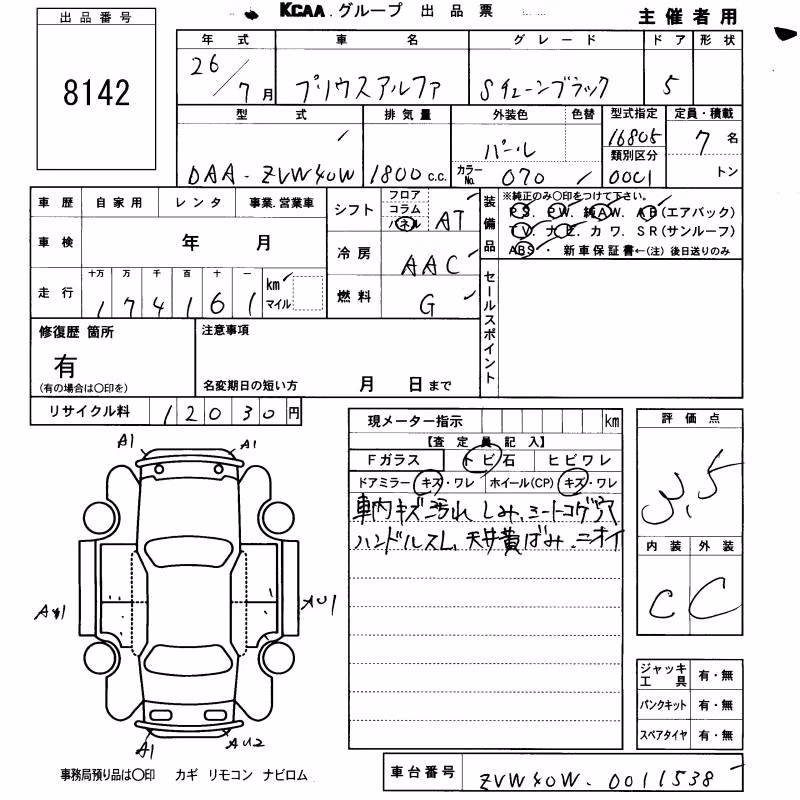 KCAA.グループ 出品票
主催者用
出品番号
8142
年式 車名 グレード ドア 形状
26/7月 プリウスアルファ Sチューンブラック 5
型式 排気量 外装色 色替 型式指定 定員・積載
DAA-ZVW40W 1800c.c. パール 16805 7名
カラーNo. 070 類別区分 0001 トン
車歴 自家用 レンタ 事業.営業車
車検 年 月
走行 十万 万 千 百 十 一
174161 km マイル
シフト フロア コラム パネル AT
冷房 AAC
燃料 G
装備品
※純正のみ〇印をつけて下さい。
PS. PW. 純AW. AB(エアバック)
TV. ナビ. カワ. SR(サンルーフ)
ABS・新車保証書←(注)後日送りのみ
セールスポイント
修復歴 箇所
有
(有の場合は〇印を)
注意事項
名変期日の短い方 月 日まで
リサイクル料 12030円
現メーター指示 km
【査定員記入】
Fガラス トビ石 ヒビワレ
ドアミラー キズ・ワレ ホイール(CP) キズ・ワレ
車内キズ汚れ しみ、シートコゲ穴
ハンドルスレ、天井黄ばみ、ニオイ
評価点
3.5
内装 外装
C C
ジャッキ工具 有・無
パンクキット 有・無
スペアタイヤ 有・無
A1 A1
AU1
A1 AU2
事務局預り品は〇印 カギ リモコン ナビロム
車台番号 ZVW40W-0011538